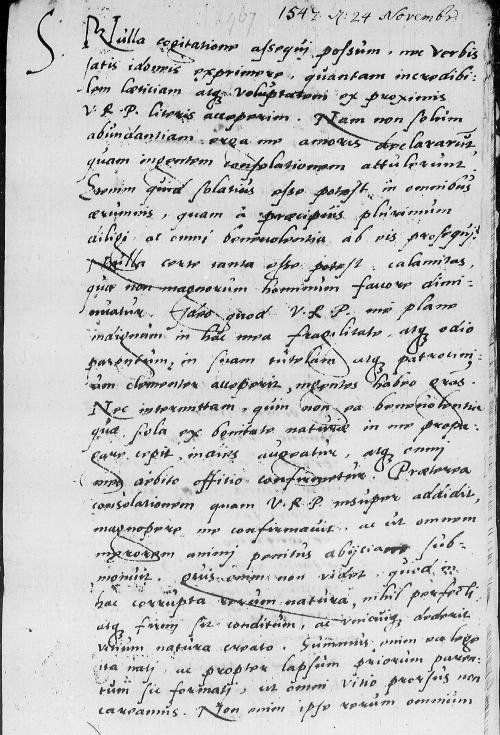 1547 24 Novembr
S
Nulla cogitatione assequi possum, nec verbis
satis idoneis exprimere, quantam incredibi-
lem læticiam atq voluptatem ex proximis
V. R. P. literis acceperim. Nam non solum
abundantiam erga me amoris declararut,
quam ingentem consolationem attulerunt.
Etenim quid solatius esse potest in omnibus
ærumnis, quam à præcipuis plurimum
diligi, ac omni benevolentia ab eis prosequj?
Nulla certe tanta esse potest calamitas,
quæ non magnorum hominum favore dimi-
nuatur. Ideo quod V. R. P. me plane
indignum in hac mea fragilitate, atq odio
parentum, in suam tutelam atq patrocinj-
um clementer acceperit, ingentes habeo gras.
Nec intermittam, quin non ea benevolentia
quæ sola ex bonitate naturæ in me propa-
gare cepit, indies augeatur, atq omni
meo debito officio confirmetur. Præterea
consolationem quam V. R. P. insuper addidit,
magnopere me confirmavit, ac ut omnem
merorem animj penitus abijciam sub-
monuit. Quis enim non videt, quod in
hac corrupta rerum natura, nihil perfecti
atq firmi sit conditum, ac unicuiq dederit
vitium natura creato. Summus enim ea lege
ita natj, ac propter lapsum priorum paren-
tum sic formatj, ut omni vitio prorsus non
careamus. Non enim ipse rerum omnium